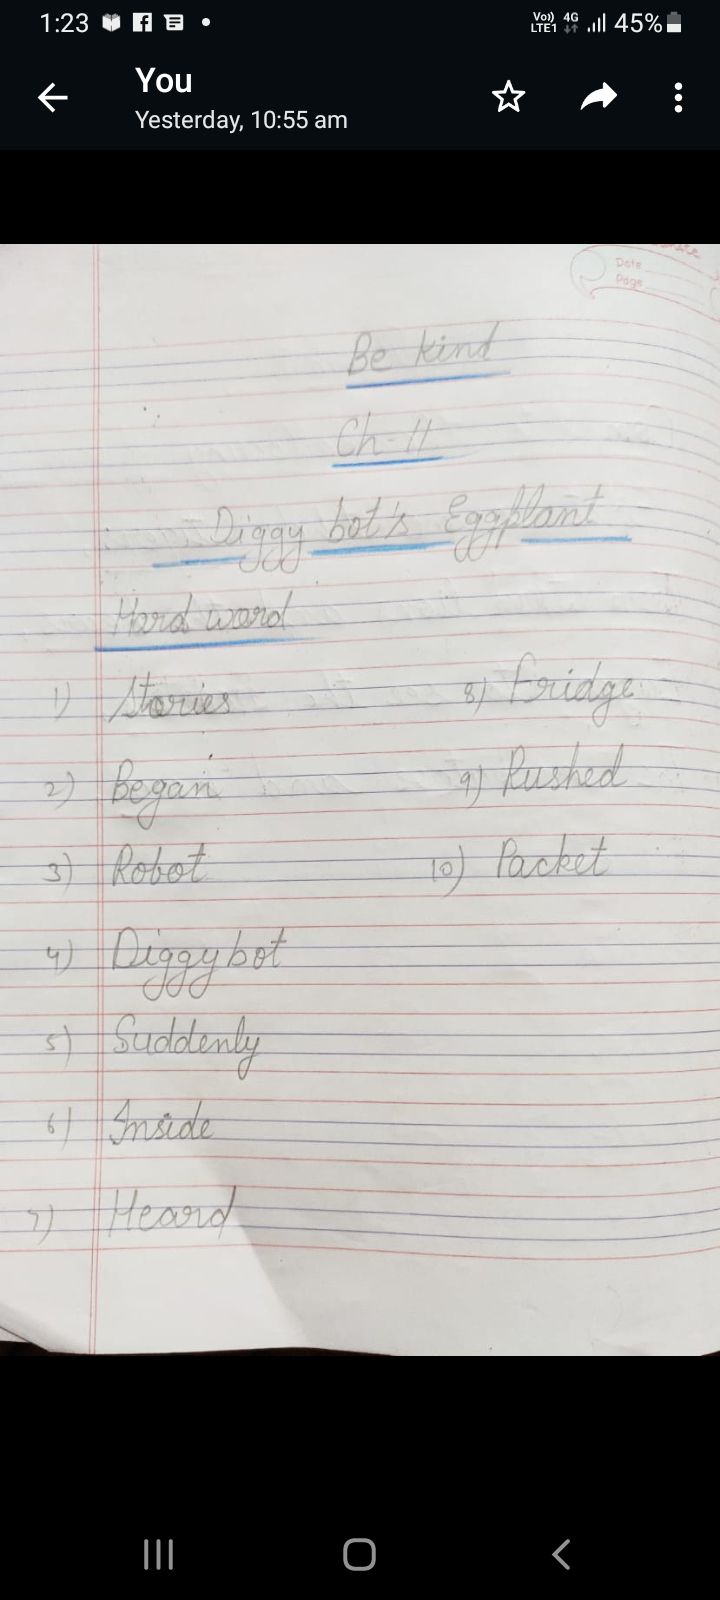 1:23 Vo)) 4G LTE1 45%
You
Yesterday, 10:55 am
Date
Page
Be kind
Ch-11
Diggy bot's Eggplant
Hard word
1) Stories
8) Fridge
2) Began
9) Rushed
3) Robot
10) Packet
4) Diggybot
5) Suddenly
6) Inside
7) Heard